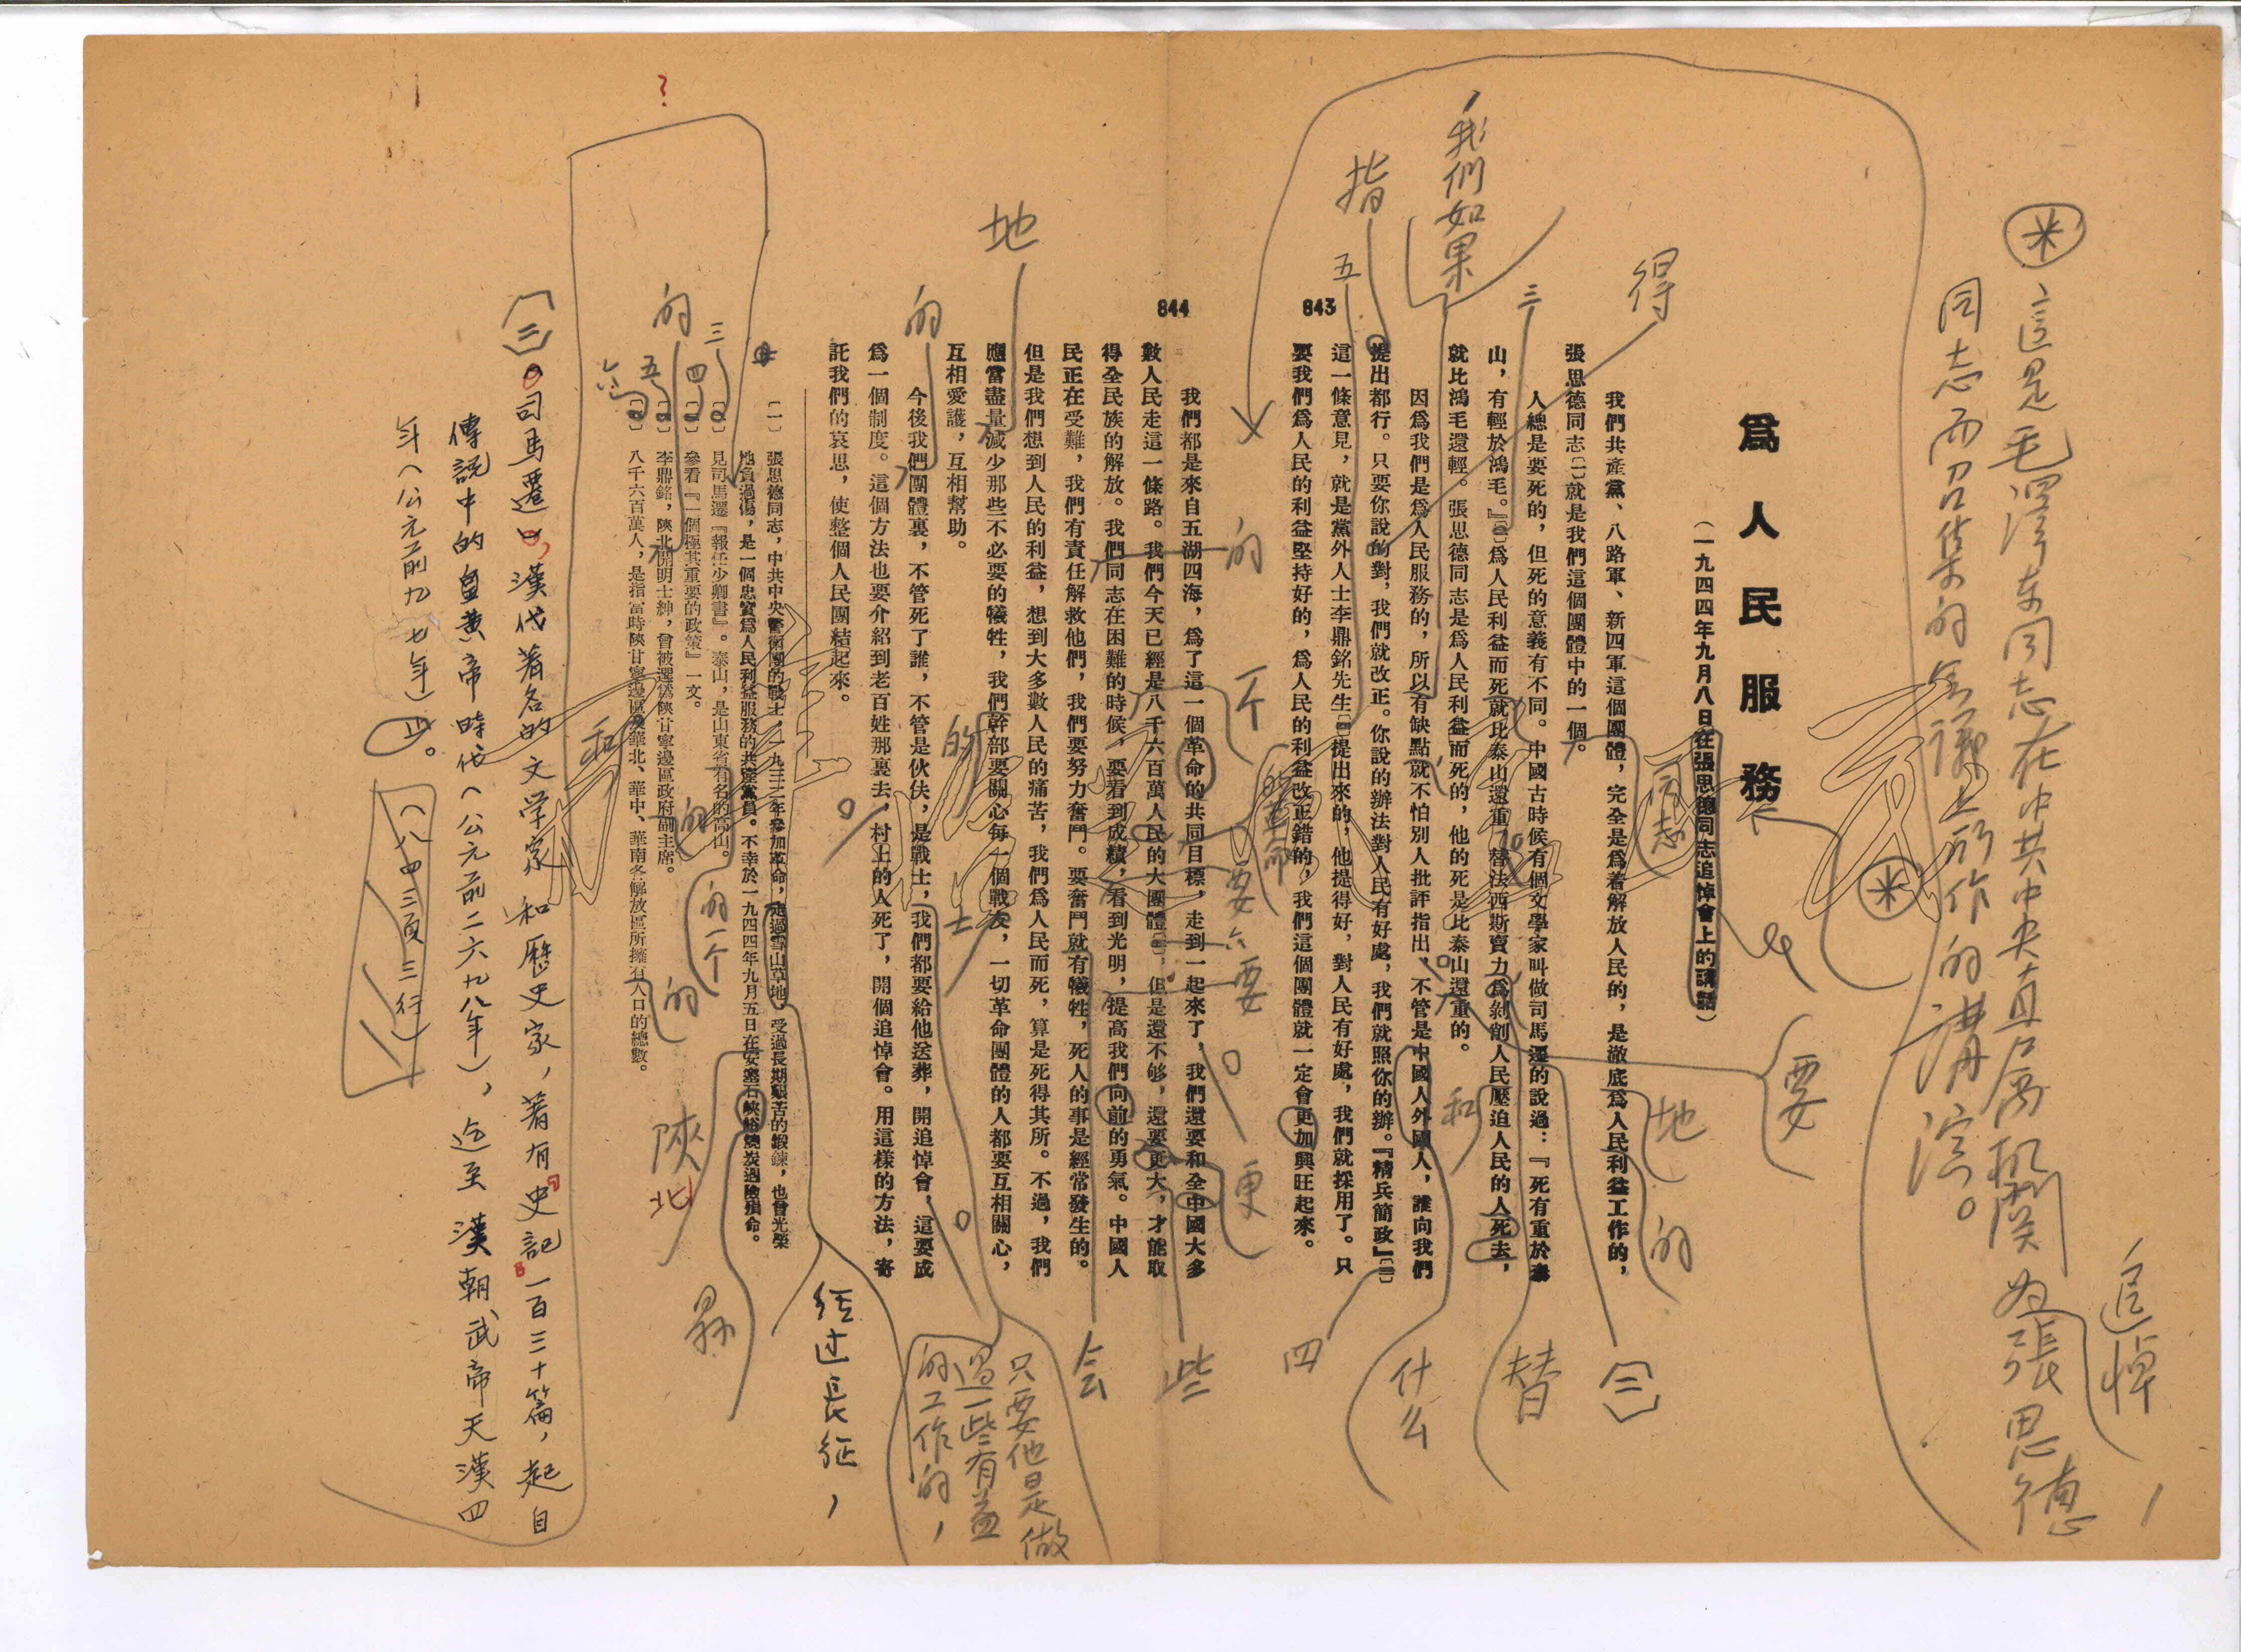 為人民服務
(一九四四年九月八日在張思德同志追悼會上的講話)
我們共產黨、八路軍、新四軍這個團體，完全是為着解放人民的，是澈底為人民利益工作的，
張思德同志〔一〕就是我們這個團體中的一個。
人總是要死的，但死的意義有不同。中國古時候有個文學家叫做司馬遷的說過：『死有重於泰
山，有輕於鴻毛。』〔二〕為人民利益而死就比泰山還重；替法西斯賣力為剝削人民壓迫人民的人死去，
就比鴻毛還輕。張思德同志是為人民利益而死的，他的死是比泰山還重的。
因為我們是為人民服務的，所以有缺點就不怕別人批評指出，不管是中國人外國人，誰向我們
提出都行。只要你說的對，我們就改正。你說的辦法對人民有好處，我們就照你的辦。『精兵簡政』〔三〕
這一條意見，就是黨外人士李鼎銘先生〔四〕提出來的，他提得好，對人民有好處，我們就採用了。只
要我們為人民的利益堅持好的，為人民的利益改正錯的，我們這個團體就一定會更加興旺起來。
843
844
我們都是來自五湖四海，為了這一個革命的共同目標，走到一起來了，我們還要和全中國大多
數人民走這一條路。我們今天已經是八千六百萬人民的大團體〔五〕，但是還不够，還要更大，才能取
得全民族的解放。我們同志在困難的時候，要看到成績，看到光明，提高我們向前的勇氣。中國人
民正在受難，我們有責任解救他們，我們要努力奮鬥。要奮鬥就有犧牲，死人的事是經常發生的。
但是我們想到人民的利益，想到大多數人民的痛苦，我們為人民而死，算是死得其所。不過，我們
應當盡量減少那些不必要的犧牲，我們幹部要關心每一個戰友，一切革命團體的人都要互相關心，
互相愛護，互相幫助。
今後我們團體裏，不管死了誰，不管是伙伕，是戰士，我們都要給他送葬，開追悼會，這要成
為一個制度。這個方法也要介紹到老百姓那裏去，村上的人死了，開個追悼會。用這樣的方法，寄
託我們的哀思，使整個人民團結起來。
〔一〕 張思德同志，中共中央警衛團的戰士，一九三三年參加革命，走過雪山草地，受過長期艱苦的鍛鍊，也曾光榮
地負過傷，是一個忠實為人民利益服務的共產黨員。不幸於一九四四年九月五日在安塞石峽峪燒炭遇險殞命。
見司馬遷『報任少卿書』。泰山，是山東省有名的高山。
參看『一個極其重要的政策』一文。
李鼎銘，陝北開明士紳，曾被選為陝甘寧邊區政府副主席。
八千六百萬人，是指當時陝甘寧邊區及華北、華中、華南各解放區所擁有人口的總數。
這是毛澤东同志在中共中央直属机関為張思德
同志而召集的会議上所作的講演。
追悼
我們如果
指
得
五
三
地
的
的
三
四
五
六
?
同志
的
个
要
要
地
的
和
更
的革命
〔三〕
替
什么
四
些
会
只要他是做
過一些有益
的工作的，
经过長征，
縣
陝北
的
的一个
和
〔二〕司馬遷，漢代著名的文学家和歷史家，著有史記一百三十篇，起自
傳說中的黃帝時代（公元前二六九八年），迄至漢朝武帝天漢四
年（公元前九七年）止。
（八四三頁三行）